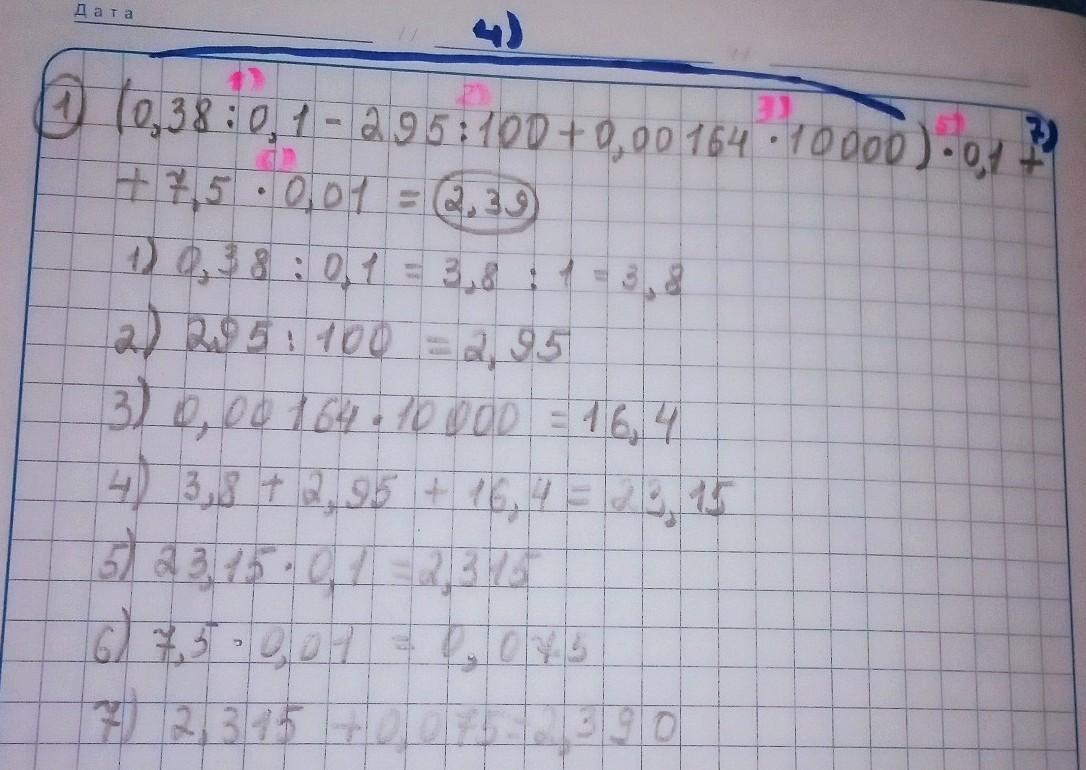 Дата
4)
1) 2) 3) 5) 7)
1 (0,38 : 0,1 - 295 : 100 + 0,00164 · 10000) · 0,1 +
6)
+ 7,5 · 0,01 = 2,39
1) 0,38 : 0,1 = 3,8 : 1 = 3,8
2) 295 : 100 = 2,95
3) 0,00164 · 10000 = 16,4
4) 3,8 + 2,95 + 16,4 = 23,15
5) 23,15 · 0,1 = 2,315
6) 7,5 · 0,01 = 0,075
7) 2,315 + 0,075 = 2,390